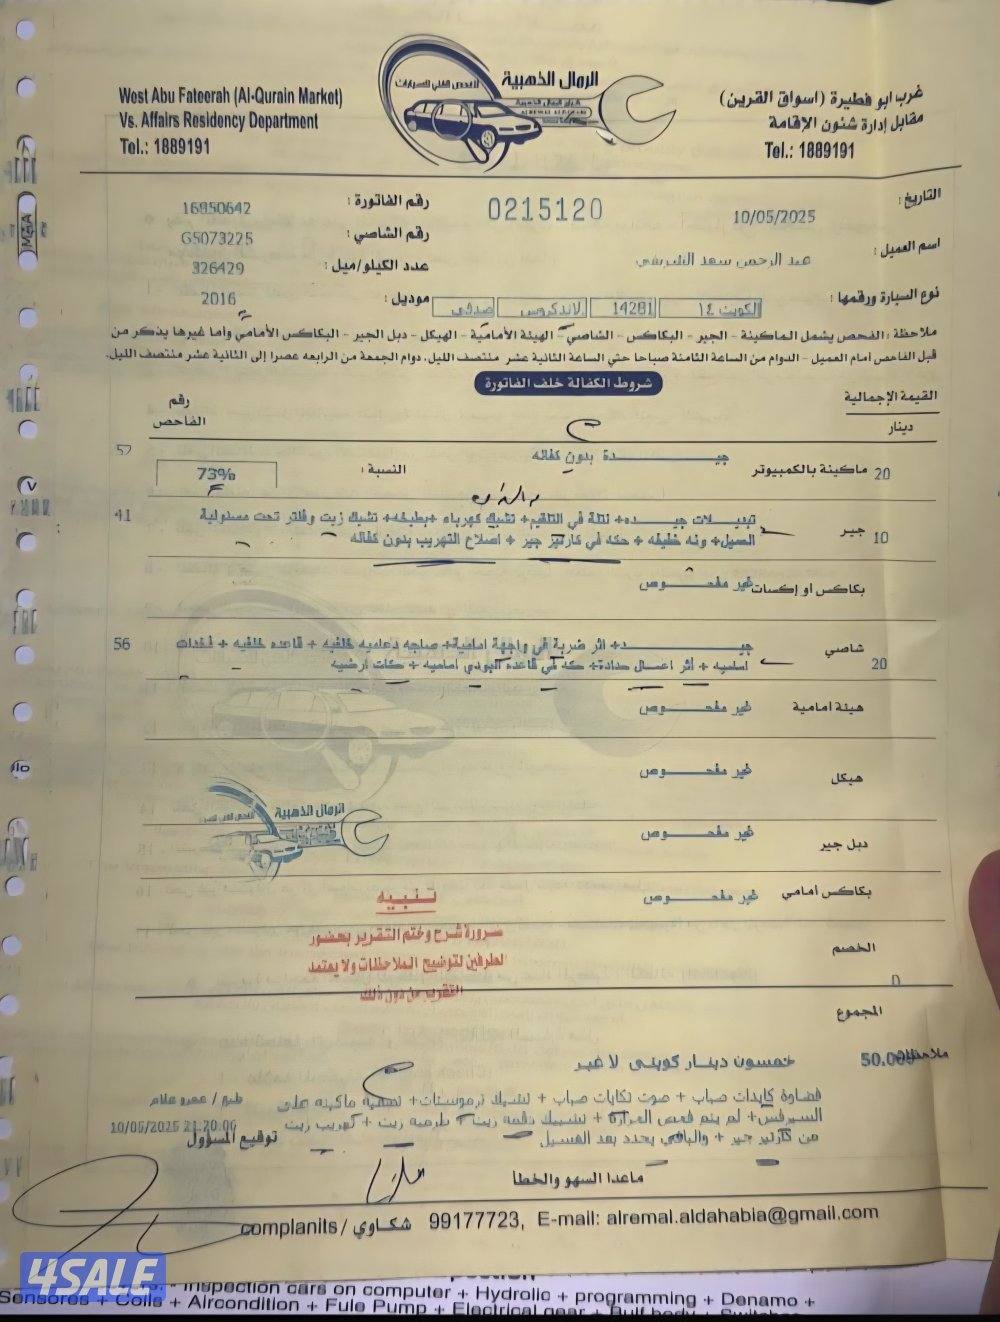 الرمال الذهبية
للفحص الفني للسيارات
West Abu Fateerah (Al-Qurain Market)
Vs. Affairs Residency Department
Tel.: 1889191
غرب ابو فطيرة (اسواق القرين)
مقابل إدارة شئون الإقامة
Tel.: 1889191
التاريخ :
10/05/2025
0215120
رقم الفاتورة :
16950642
رقم الشاصي :
G5073225
اسم العميل :
عبد الرحمن سعد
عدد الكيلو/ميل :
326429
نوع السيارة ورقمها :
الكويت ١٤
14281
لاندكروس
صدفي
موديل :
2016
ملاحظة : الفحص يشمل الماكينة - الجير - البكاكس - الشاصي - الهيئة الأمامية - الهيكل - دبل الجير - البكاكس الأمامي وأما غيرها يذكر من
قبل الفاحص أمام العميل - الدوام من الساعة الثامنة صباحا حتي الساعة الثانية عشر منتصف الليل، دوام الجمعة من الرابعه عصرا إلى الثانية عشر منتصف الليل.
شروط الكفالة خلف الفاتورة
القيمة الإجمالية
دينار
رقم
الفاحص
20
ماكينة بالكمبيوتر
جيـــــــدة بدون كفاله
النسبة :
73%
57
10
جير
تبديــلات جيــــده+ نتلة في التلقيم+ تشيك كهرباء +بطيخه+ تشيك زيت وفلتر تحت مسئولية
الصيل+ ونه خفيفه + حكه في كارتيز جير + اصلاح التهريب بدون كفاله
41
بكاكس او إكسات
غير مفحـــوص
20
شاصي
جيـــــد+ اثر ضربة في واجهة امامية+ صاجه دعاميه خلفيه + قاعده خلفيه + فخدات
اماميه + أثر اعمال حدادة+ حكه في قاعدة البودي اماميه + حكات ارضيه
56
هيئة امامية
غير مفحـــوص
هيكل
غير مفحـــوص
دبل جير
غير مفحـــوص
بكاكس امامي
غير مفحـــوص
الرمال الذهبية
تنبيه
ضرورة شرح وختم التقرير بحضور
الطرفين لتوضيح الملاحظات ولا يعتمد
التقرير من دون ذلك
الخصم
0
المجموع
50.000
خمسون دينار كويتي لا غير
ملاحظات
قضاوة كايدات صباب + صوت تكايات صباب + تشيك ثرموستات+ تصفية ماكينه على
السيرفس+ لم يتم فحص الحرارة + تشييك نقصه زيت + طرمبه زيت + تهريب زيت
من كارتير جير + والباقي يحدد بعد الغسيل
طبع / عمرو علام
10/05/2025 21:20:06
توقيع المسؤول
ماعدا السهو والخطأ
complanits / شكاوي 99177723, E-mail: alremal.aldahabia@gmail.com
4SALE
Inspection cars on computer + Hydrolic + programming + Denamo +
Sensoros + Coils + Aircondition + Fule Pump + Electrical gear